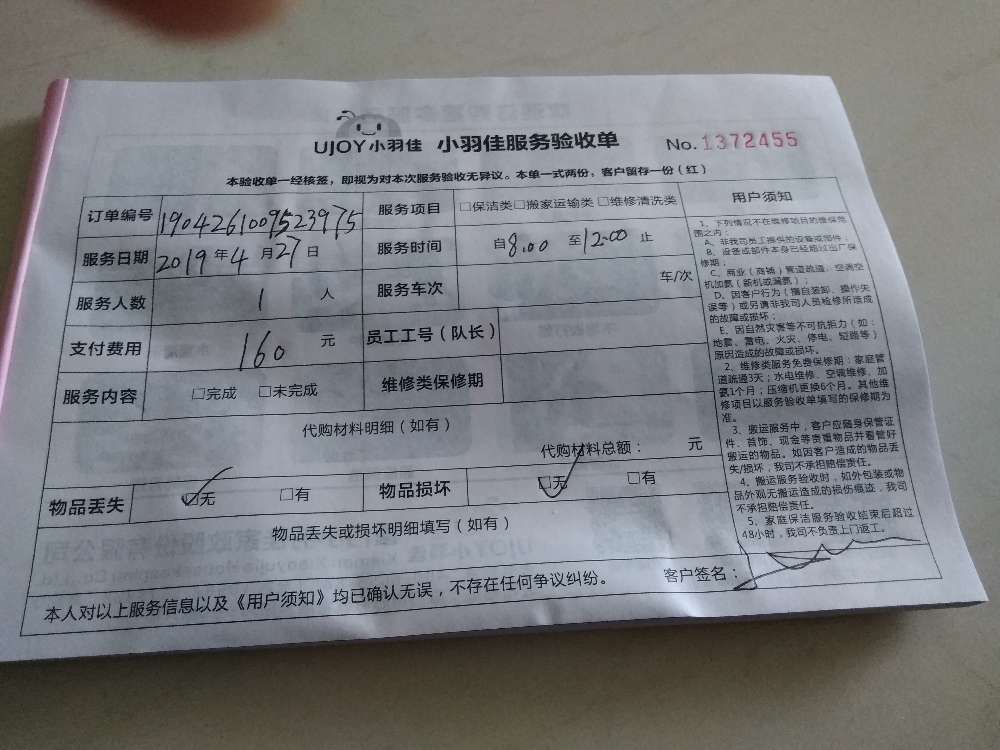 UJOY小羽佳 小羽佳服务验收单 No.1372455
本验收单一经核签，即视为对本次服务验收无异议。本单一式两份，客户留存一份（红）
订单编号 1904261009523975 服务项目 □保洁类□搬家运输类□维修清洗类
服务日期 2019年4月27日 服务时间 自8:00至12:00止
服务人数 1人 服务车次 车/次
支付费用 160元 员工工号（队长）
服务内容 □完成 □未完成 维修类保修期
代购材料明细（如有）
代购材料总额： 元
物品丢失 ☑无 □有 物品损坏 ☑无 □有
物品丢失或损坏明细填写（如有）
本人对以上服务信息以及《用户须知》均已确认无误，不存在任何争议纠纷。 客户签名：
用户须知
1、下列情况不在维修项目的维保范
围之内：
A、非我司员工提供的设备或部件；
B、设备或部件本身已经超过出厂保
修期；
C、商业（商铺）管道疏通，空调空
机加氨（新机或漏氨）；
D、因客户行为（擅自装卸、操作失
误等）或另请非我司人员检修所造成
的故障或损坏；
E、因自然灾害等不可抗拒力（如：
地震、雷电、火灾、停电、短路等）
原因造成的故障或损坏。
2、维修类服务免费保修期：家庭管
道疏通3天；水电维修、空调维修、加
氨1个月；压缩机更换6个月。其他维
修项目以服务验收单填写的保修期为
准。
3、搬运服务中，客户应随身保管证
件、首饰、现金等贵重物品并看管好
搬运的物品。如因客户造成的物品丢
失/损坏，我司不承担赔偿责任。
4、搬运服务验收时，如外包装或物
品外观无搬运造成的损伤痕迹，我司
不承担赔偿责任。
5、家庭保洁服务验收结束后超过
48小时，我司不负责上门返工。